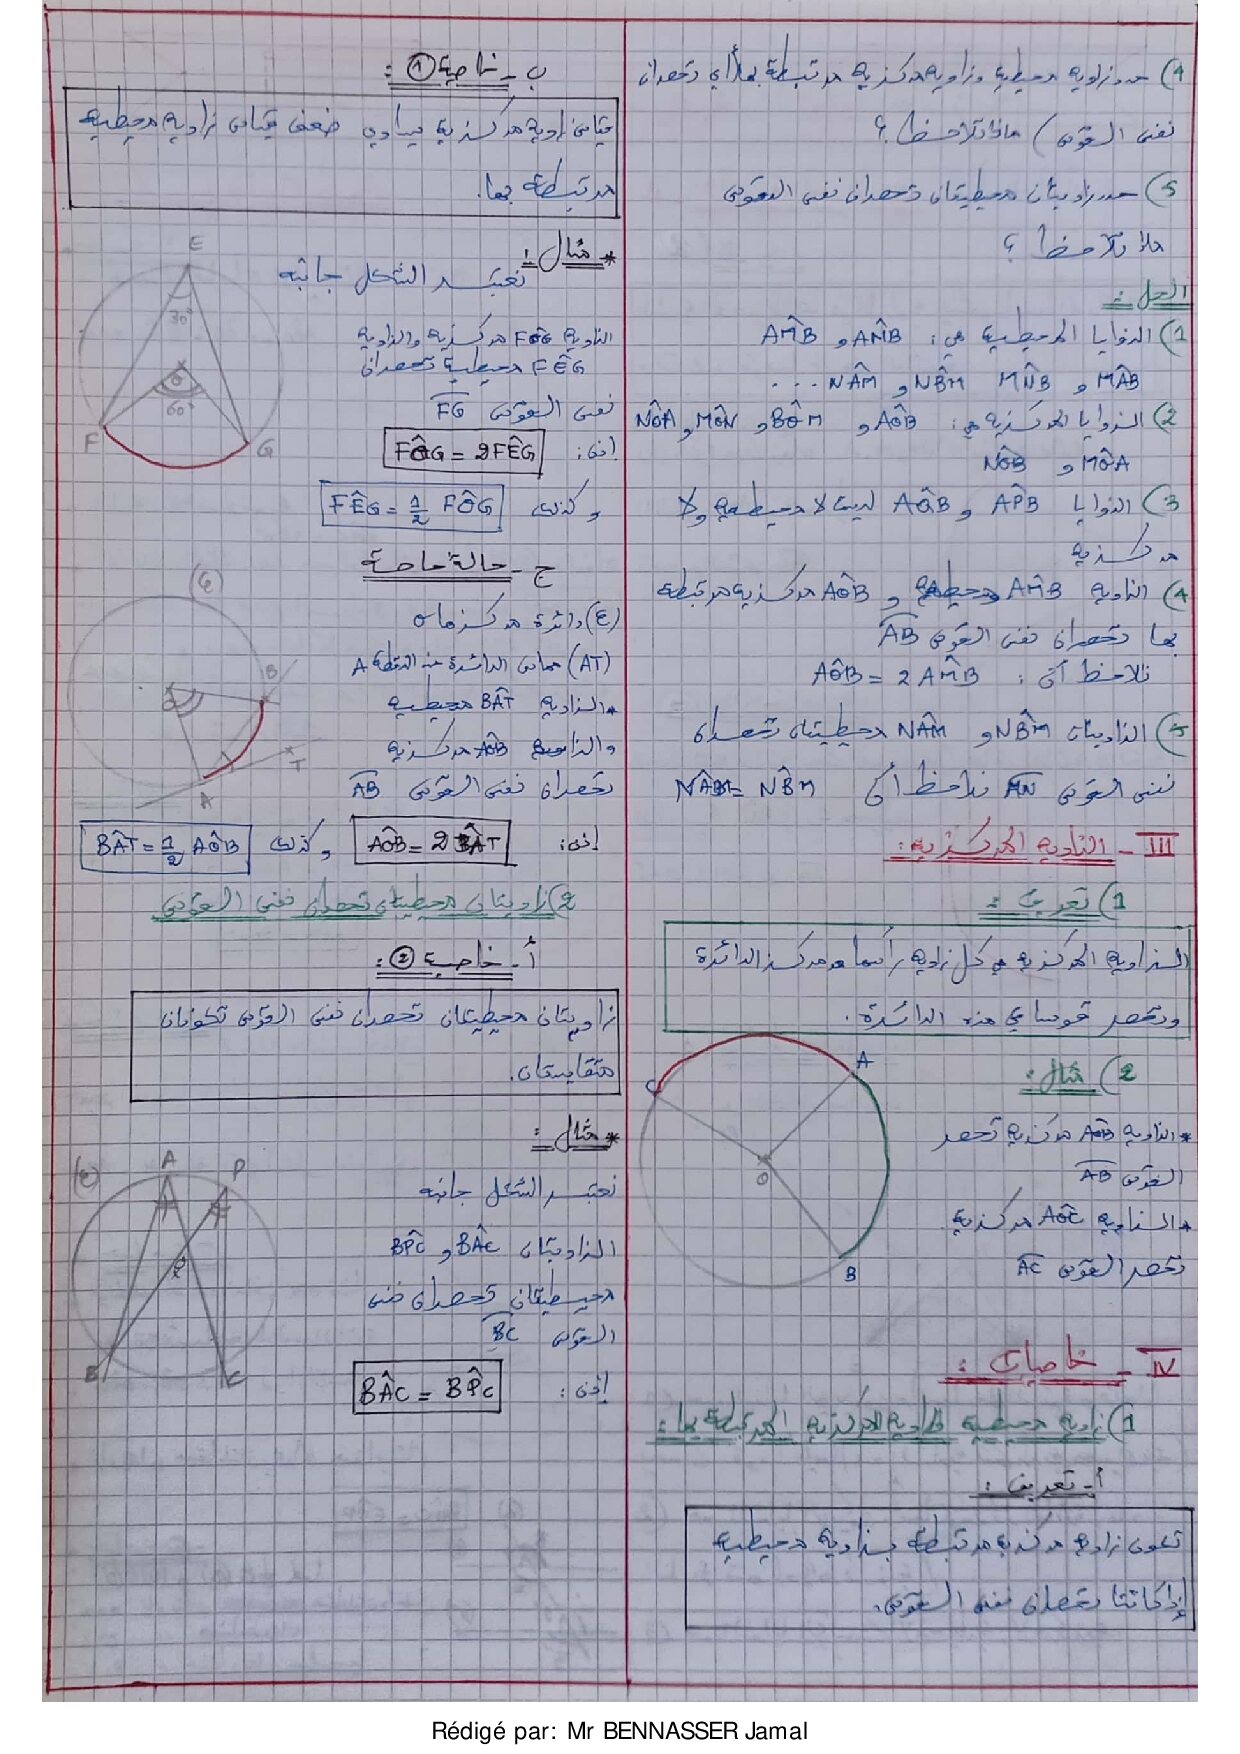 4) حدد زاوية محيطية وزاوية مركزية مرتبطة بها (أي تحصران
نفس القوس) ماذا تلاحظ؟
5) حدد زاويتان محيطيتان تحصران نفس القوس
ماذا تلاحظ؟
الحل:
1) الزوايا المحيطية هي: AN̂B و AM̂B
MÂB و MN̂B NB̂M و NÂM ...
2) الزوايا المركزية هي: AÔB و BÔM و MÔN و NÔA
MÔA و NÔB
3) الزوايا AP̂B و AQ̂B ليست لا محيطية ولا
مركزية
4) الزاوية AM̂B محيطية و AÔB مركزية مرتبطة
بها تحصران نفس القوس AB
نلاحظ أن: AÔB = 2 AM̂B
5) الزاويتان NB̂M و NÂM محيطيتان تحصران
نفس القوس MN نلاحظ أن = NB̂M
III - الزاوية المركزية:
1) تعريف:
الزاوية المركزية هي كل زاوية رأسها هو مركز الدائرة
وتحصر قوسا من هذه الدائرة.
2) مثال:
* الزاوية AÔB مركزية تحصر
القوس AB
* الزاوية AÔC مركزية
تحصر القوس AC
C
A
O
B
IV - خاصيات:
1) زاوية محيطية والزاوية المركزية المرتبطة بها:
أ- تعريف:
تكون زاوية مركزية مرتبطة بزاوية محيطية
إذا كانتا تحصران نفس القوس.
ب - خاصية 1:
قياس زاوية مركزية يساوي ضعف قياس زاوية محيطية
مرتبطة بها.
* مثال:
نعتبر الشكل جانبه
الزاوية FÔG مركزية والزاوية
FÊG محيطية تحصران
نفس القوس FG
إذن: FÔG = 2FÊG
وكذلك FÊG = 1/2 FÔG
E
30°
O
60°
F
G
ج - حالة خاصة
(C) دائرة مركزها O
(AT) مماس الدائرة عند النقطة A
* الزاوية BÂT محيطية
والزاوية AÔB مركزية
تحصران نفس القوس AB
إذن: AÔB = 2 BÂT وكذلك BÂT = 1/2 AÔB
(C)
B
T
A
2) زاويتان محيطيتان تحصران نفس القوس
أ - خاصية 2:
زاويتان محيطيتان تحصران نفس القوس تكونان
متقايستان.
* مثال:
نعتبر الشكل جانبه
الزاويتان BÂC و BP̂C
محيطيتان تحصران نفس
القوس BC
إذن: BÂC = BP̂C
(C)
A
P
B
C
Rédigé par: Mr BENNASSER Jamal